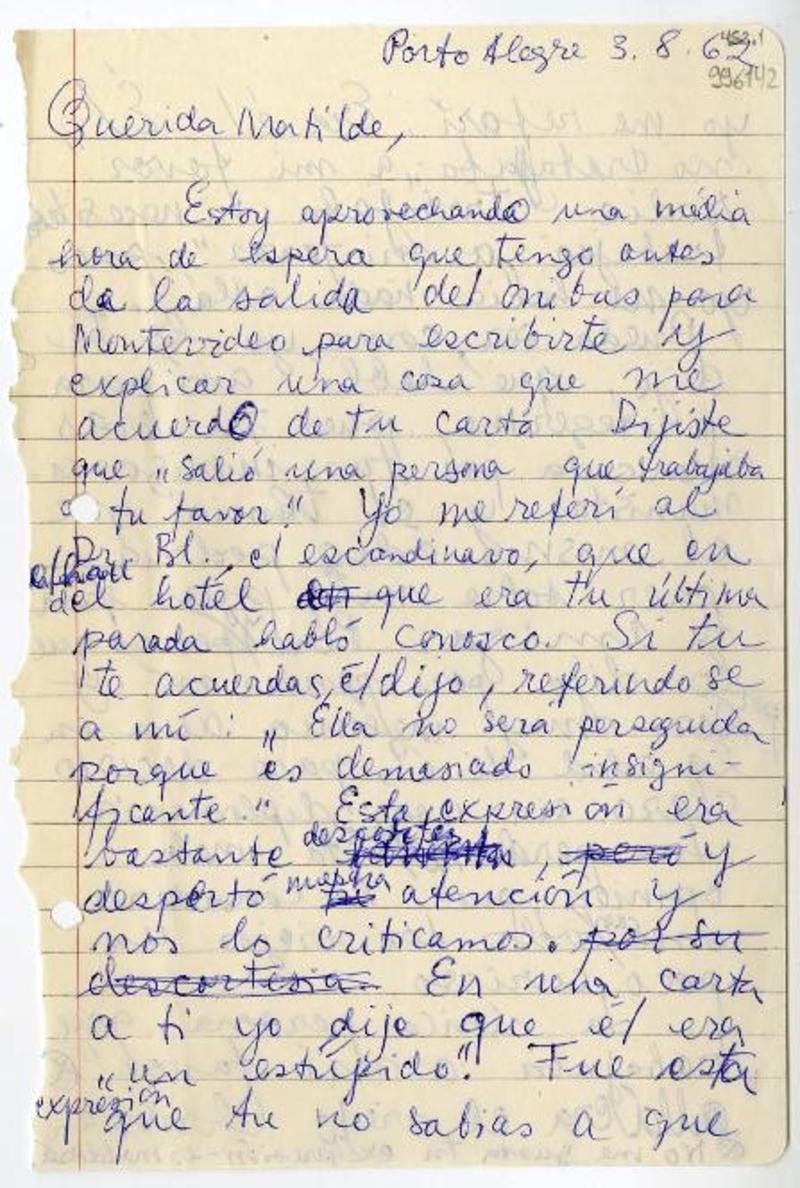 Porto Alegre 3. 8. 62
Querida Matilde,
Estoy aprovechando una média
hora de espera que tengo antes
de la salida del onibus para
Montevideo para escribirte y
explicar una cosa que me
acuerdo de tu carta. Dijiste
que „salió una persona que trabajaba
a tu favor." Yo me referí al
Dr. Bl., el escandinavo, que en
del hotel en que era tu última
parada habló conosco. Si tu
te acuerdas, él dijo, referindo se
a mí: „Ella no será perseguida
porque es demasiado insigni-
ficante." Esta expresión era
descortés
bastante , pero y
nuestra
despertó atención y
nos lo criticamos. por su
descortesia. En una carta
a ti yo dije que él era
„un estúpido". Fue esta
expresión
que tu no sabias a que